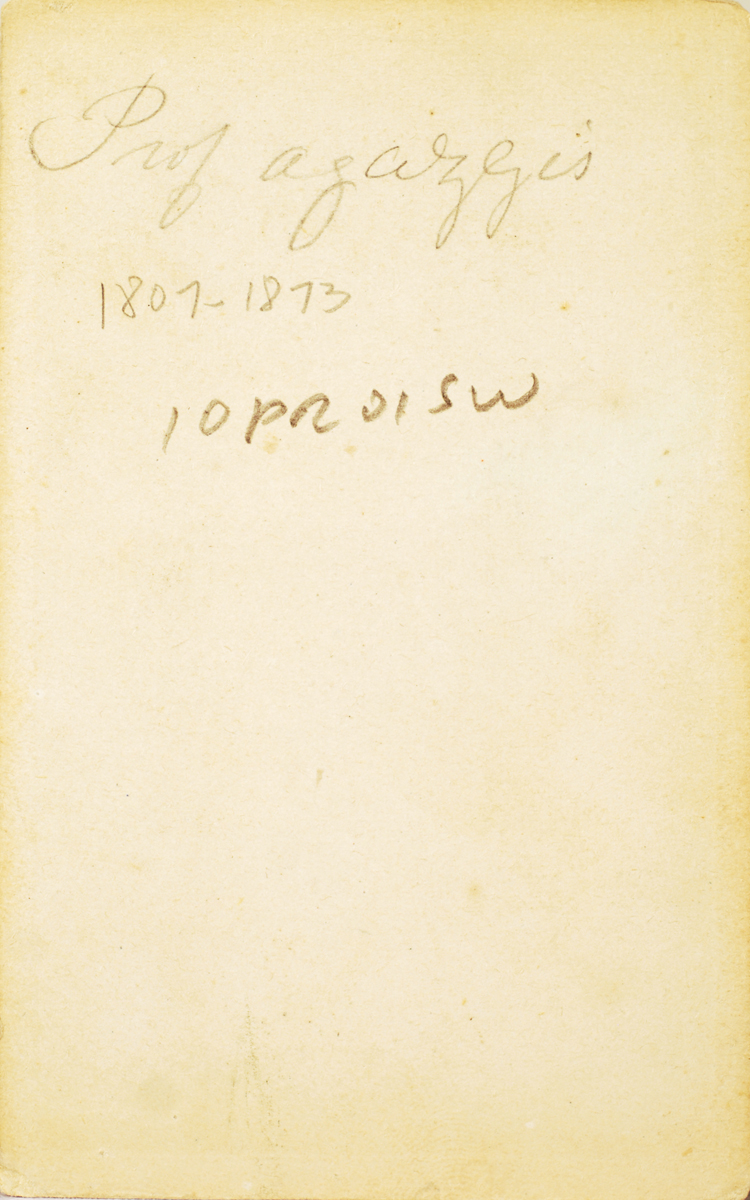 Prof agazzis
1807-1873
10PR01SW